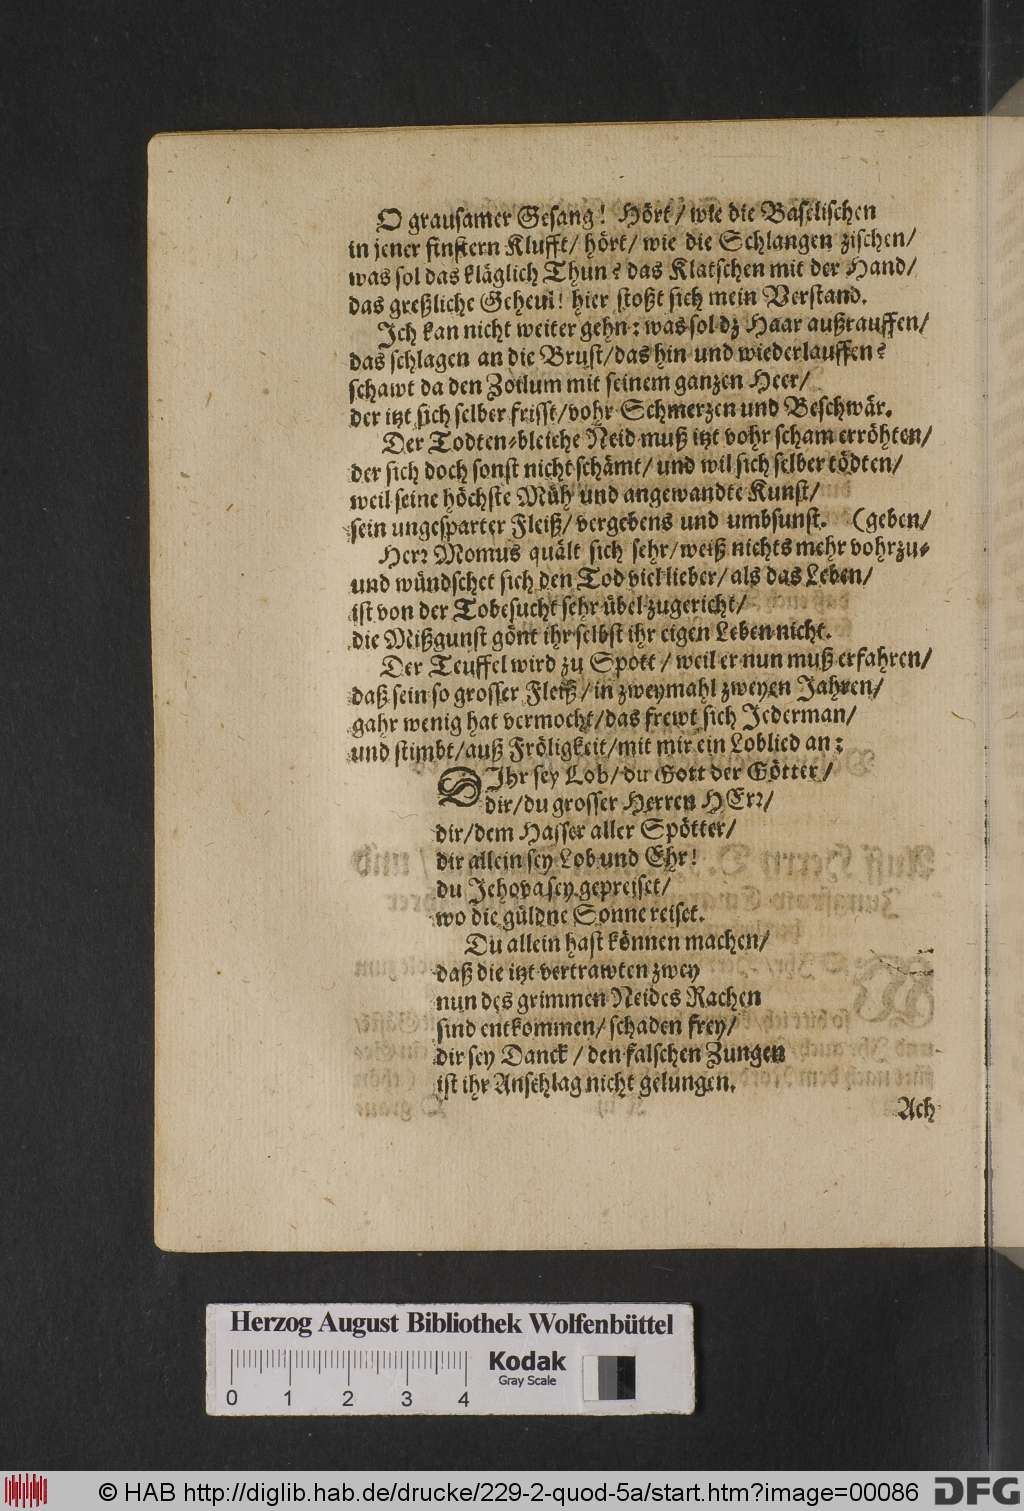 O grausamer Gesang! Hört/ wie die Baselischen
in jener finstern Klufft/ hört/ wie die Schlangen zischen/
was sol das kläglich Thun? das Klatschen mit der Hand/
das greßliche Geheul! hier stoßt sich mein Verstand.
Ich kan nicht weiter gehn: was sol dz Haar außrauffen/
das schlagen an die Brust/ das hin und wiederlauffen?
schawt da den Zoilum mit seinem ganzen Heer/
der itzt sich selber frisst/ vohr Schmerzen und Beschwär.
Der Todten-bleiche Neid muß itzt vohr scham erröhten/
der sich doch sonst nicht schämt/ und wil sich selber tödten/
weil seine höchste Müh und angewandte Kunst/
sein ungesparter Fleiß/ vergebens und umbsunst. (geben/
Herr Momus quält sich sehr/ weiß nichts mehr vohrzu-
und wündschet sich den Tod viel lieber/ als das Leben/
ist von der Tobesucht sehr übel zugericht/
die Mißgunst gönt ihr selbst ihr eigen Leben nicht.
Der Teuffel wird zu Spott/ weil er nun muß erfahren/
daß sein so grosser Fleiß/ in zweymahl zweyen Jahren/
gahr wenig hat vermocht/ das frewt sich Jederman/
und stimbt/ auß Fröligkeit/ mit mir ein Loblied an:
DIhr sey Lob/ du Gott der Götter/
dir/ du grosser Herren HErr/
dir/ dem Hasser aller Spötter/
dir allein sey Lob und Ehr!
du Jehova sey gepreiset/
wo die güldne Sonne reiset.
Du allein hast können machen/
daß die itzt vertrawten zwey
nun des grimmen Neides Rachen
sind entkommen/ schaden frey/
dir sey Danck/ den falschen Zungen
ist ihr Anschlag nicht gelungen.
Ach
Herzog August Bibliothek Wolfenbüttel
Kodak
Gray Scale
0 1 2 3 4
© HAB http://diglib.hab.de/drucke/229-2-quod-5a/start.htm?image=00086 DFG